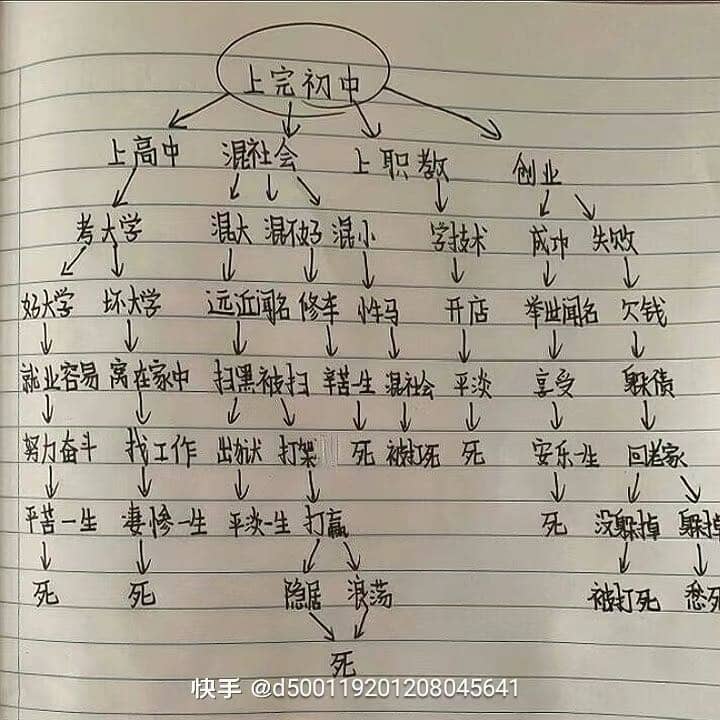 上完初中
上高中 混社会 上职教 创业
考大学 混大 混不好 混小 学技术 成功 失败
好大学 坏大学 远近闻名 修车 性马 开店 举世闻名 欠钱
就业容易 窝在家中 扫黑被扫 辛苦一生 混社会 平淡 享受 躲债
努力奋斗 找工作 出狱 打架 死 被打死 死 安乐一生 回老家
平苦一生 凄惨一生 平淡一生 打赢 死 没躲掉 躲掉
死 死 隐居 浪荡 被打死 愁死
死
快手 @d500119201208045641